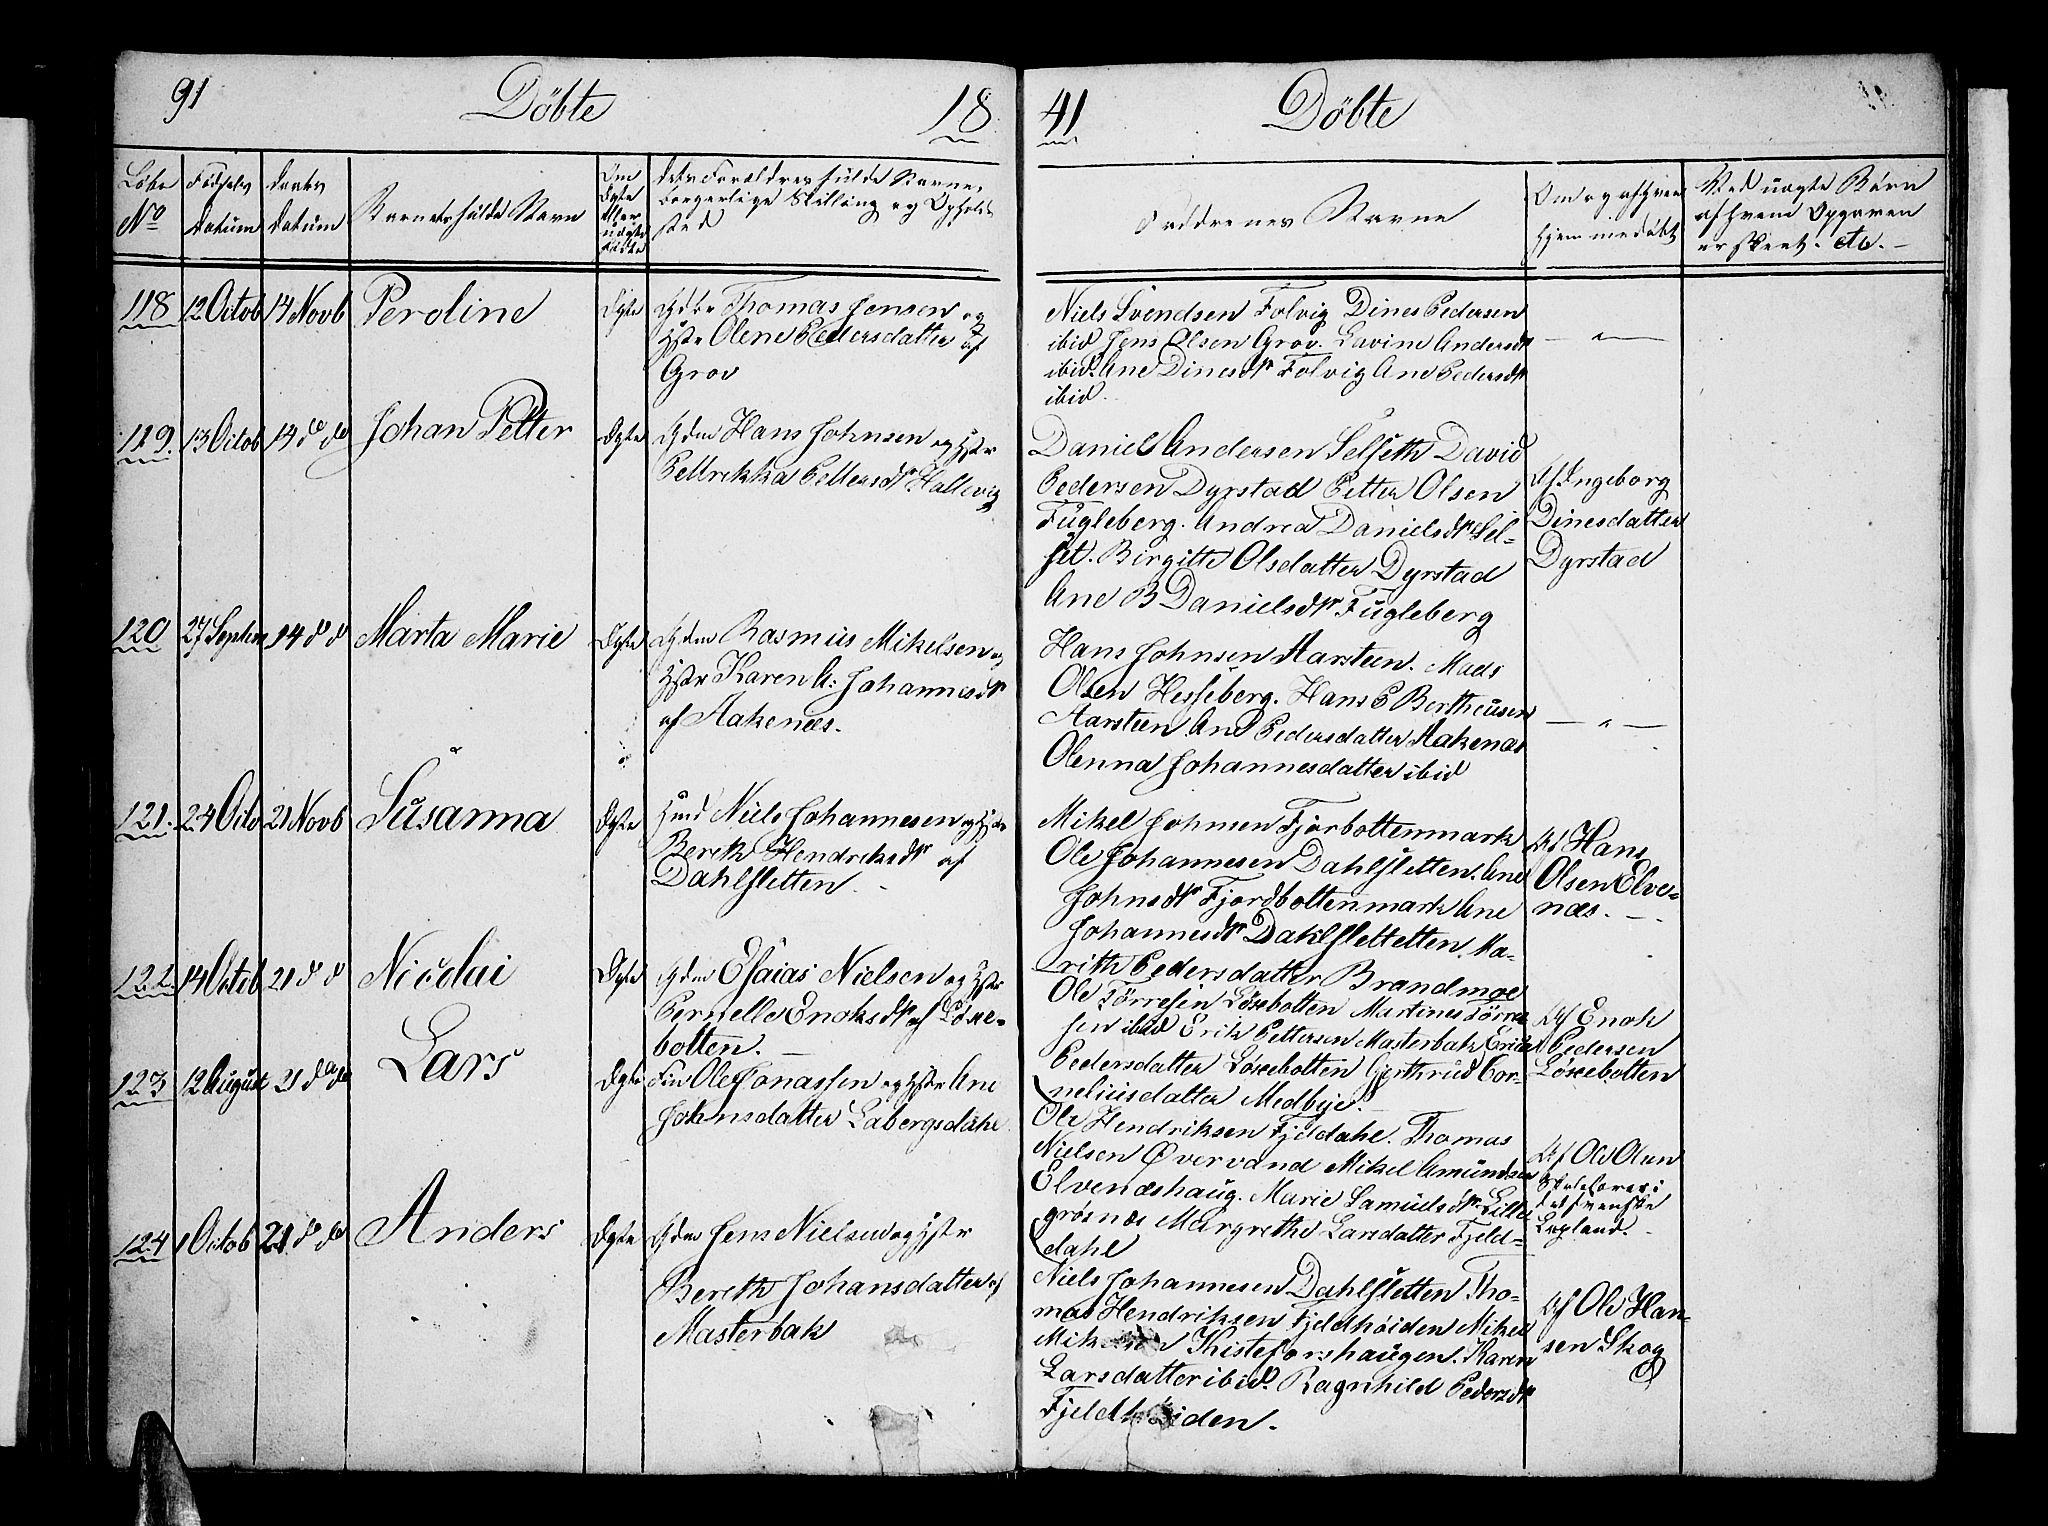 91 Döbte 18
41 Döbte
Löbe No
Fødsels datum
daabs datum
Barnets fulde Navn
Om ægte eller uægte födte
dets Forældres fulde Navne,
borgerlige Stilling og Opholds
sted
Faddrenes Navne
Om og af hvem
hjemmedøbt
Ved uægte Børn
af hvem Opgaven
er skeet. etc.
118 12 Octob 14 Novb Peroline Ægte Gdbr Thomas Jensen og
Hstr Olene Pedersdatter af
Grov
Niels Svendsen Folvig Dines Pedersen
ibid Jens Olsen Grov. Lavine Andersdtr
ibid. Ane Dinesdtr Folvig Ane Pedersdtr
ibid.
119. 13 Octob 14 do do Johan Petter Ægte Gdm Hans Johnsen og Hstr
Pettrekka Pettersdtr Hallevig
Daniel Andersen Selseth David
Pedersen Dyrstad Petter Olsen
Fugleberg. Andrea Danielsdtr Sel-
set. Birgitte Olsdatter Dyrstad
Ane B Danielsdtr Fugleberg
Af Ingeborg
Dinesdatter
Dyrstad
120 27 Septem 14 d d Marta Marie Ægte Gdm Rasmus Mikelsen og
Hstr Karen A: Johannesdtr
af Aakenæs.
Hans Johnsen Aarsteen. Mads
Olsen Hesseberg. Hans P Bertheusen
Aarsteen Ane Pedersdatter Aakenæs
Olenna Johannesdatter ibid
121. 24 Octo 21 Novb Susanna Ægte Hmd Niels Johannesen og Hstr
Bereth Hendriksdtr af
Dahlsletten.
Mikel Johnsen Fjorbottenmark
Ole Johannesen Dahlsletten. Ane
Johnsdtr Fjordbottenmark Ane
Johannesdtr Dahlslettetten. Ma-
rith Pedersdatter Brandmoe
Af Hans
Olsen Elve-
næs.
122. 14 Octob 21 d d Nicolai Ægte Gdm Esaias Nielsen og Hstr
Pernelle Enoksdtr af Löxe-
botten.
Ole Törresen Löxebotten Martines Törre
sen ibid Erik Pettersen Masterbak Erica
Pedersdatter Löxebotten Gjerthrud Cor-
neliusdatter Medbye.
Af Enok
Pedersen
Löxebotten
123 12 August 21 do do Lars Ægte Fin Ole Jonassen og Hstr Ane
Johnsdatter Labergsdahl
Ole Hendriksen Fjeldahl. Thomas
Nielsen Øvervand Mikel Amundsen
Elveneshaug. Marie Samuelsdtr Lille
grøsnæs Margrethe Larsdatter Fjeld-
dahl
Af Ole Olsen
Skoleforer i
det svenske
Lapland.
124 1 Octob 21 do do Anders Ægte Gdm Jens Nielsen og Hstr
Bereth Johansdatter af
Masterbak
Niels Johannesen Dahlsletten Tho-
mas Hendriksen Fjeldhöiden Mikel
Mikelsen Kisteforshaugen. Karen
Larsdatter ibid. Ragnhild Pedersdtr
Fjeldhöiden.
Af Ole Han-
sen Skog